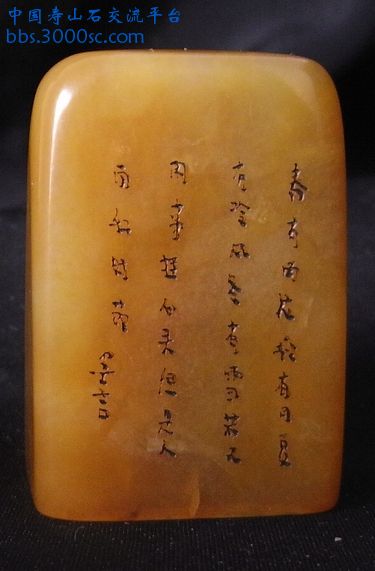 中国寿山石交流平台
bbs.3000sc.com
春有百花秋有月夏
有凉风冬有雪若无
闲事挂心头便是人
间好时节